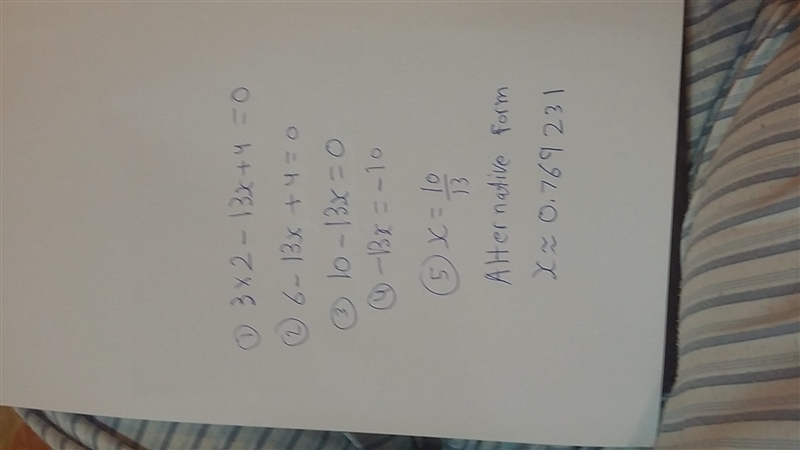 ① 3×2 - 13x + 4 = 0
② 6 - 13x + 4 = 0
③ 10 - 13x = 0
④ -13x = -10
⑤ x = 10/13
Alternative form
x ≈ 0.769231